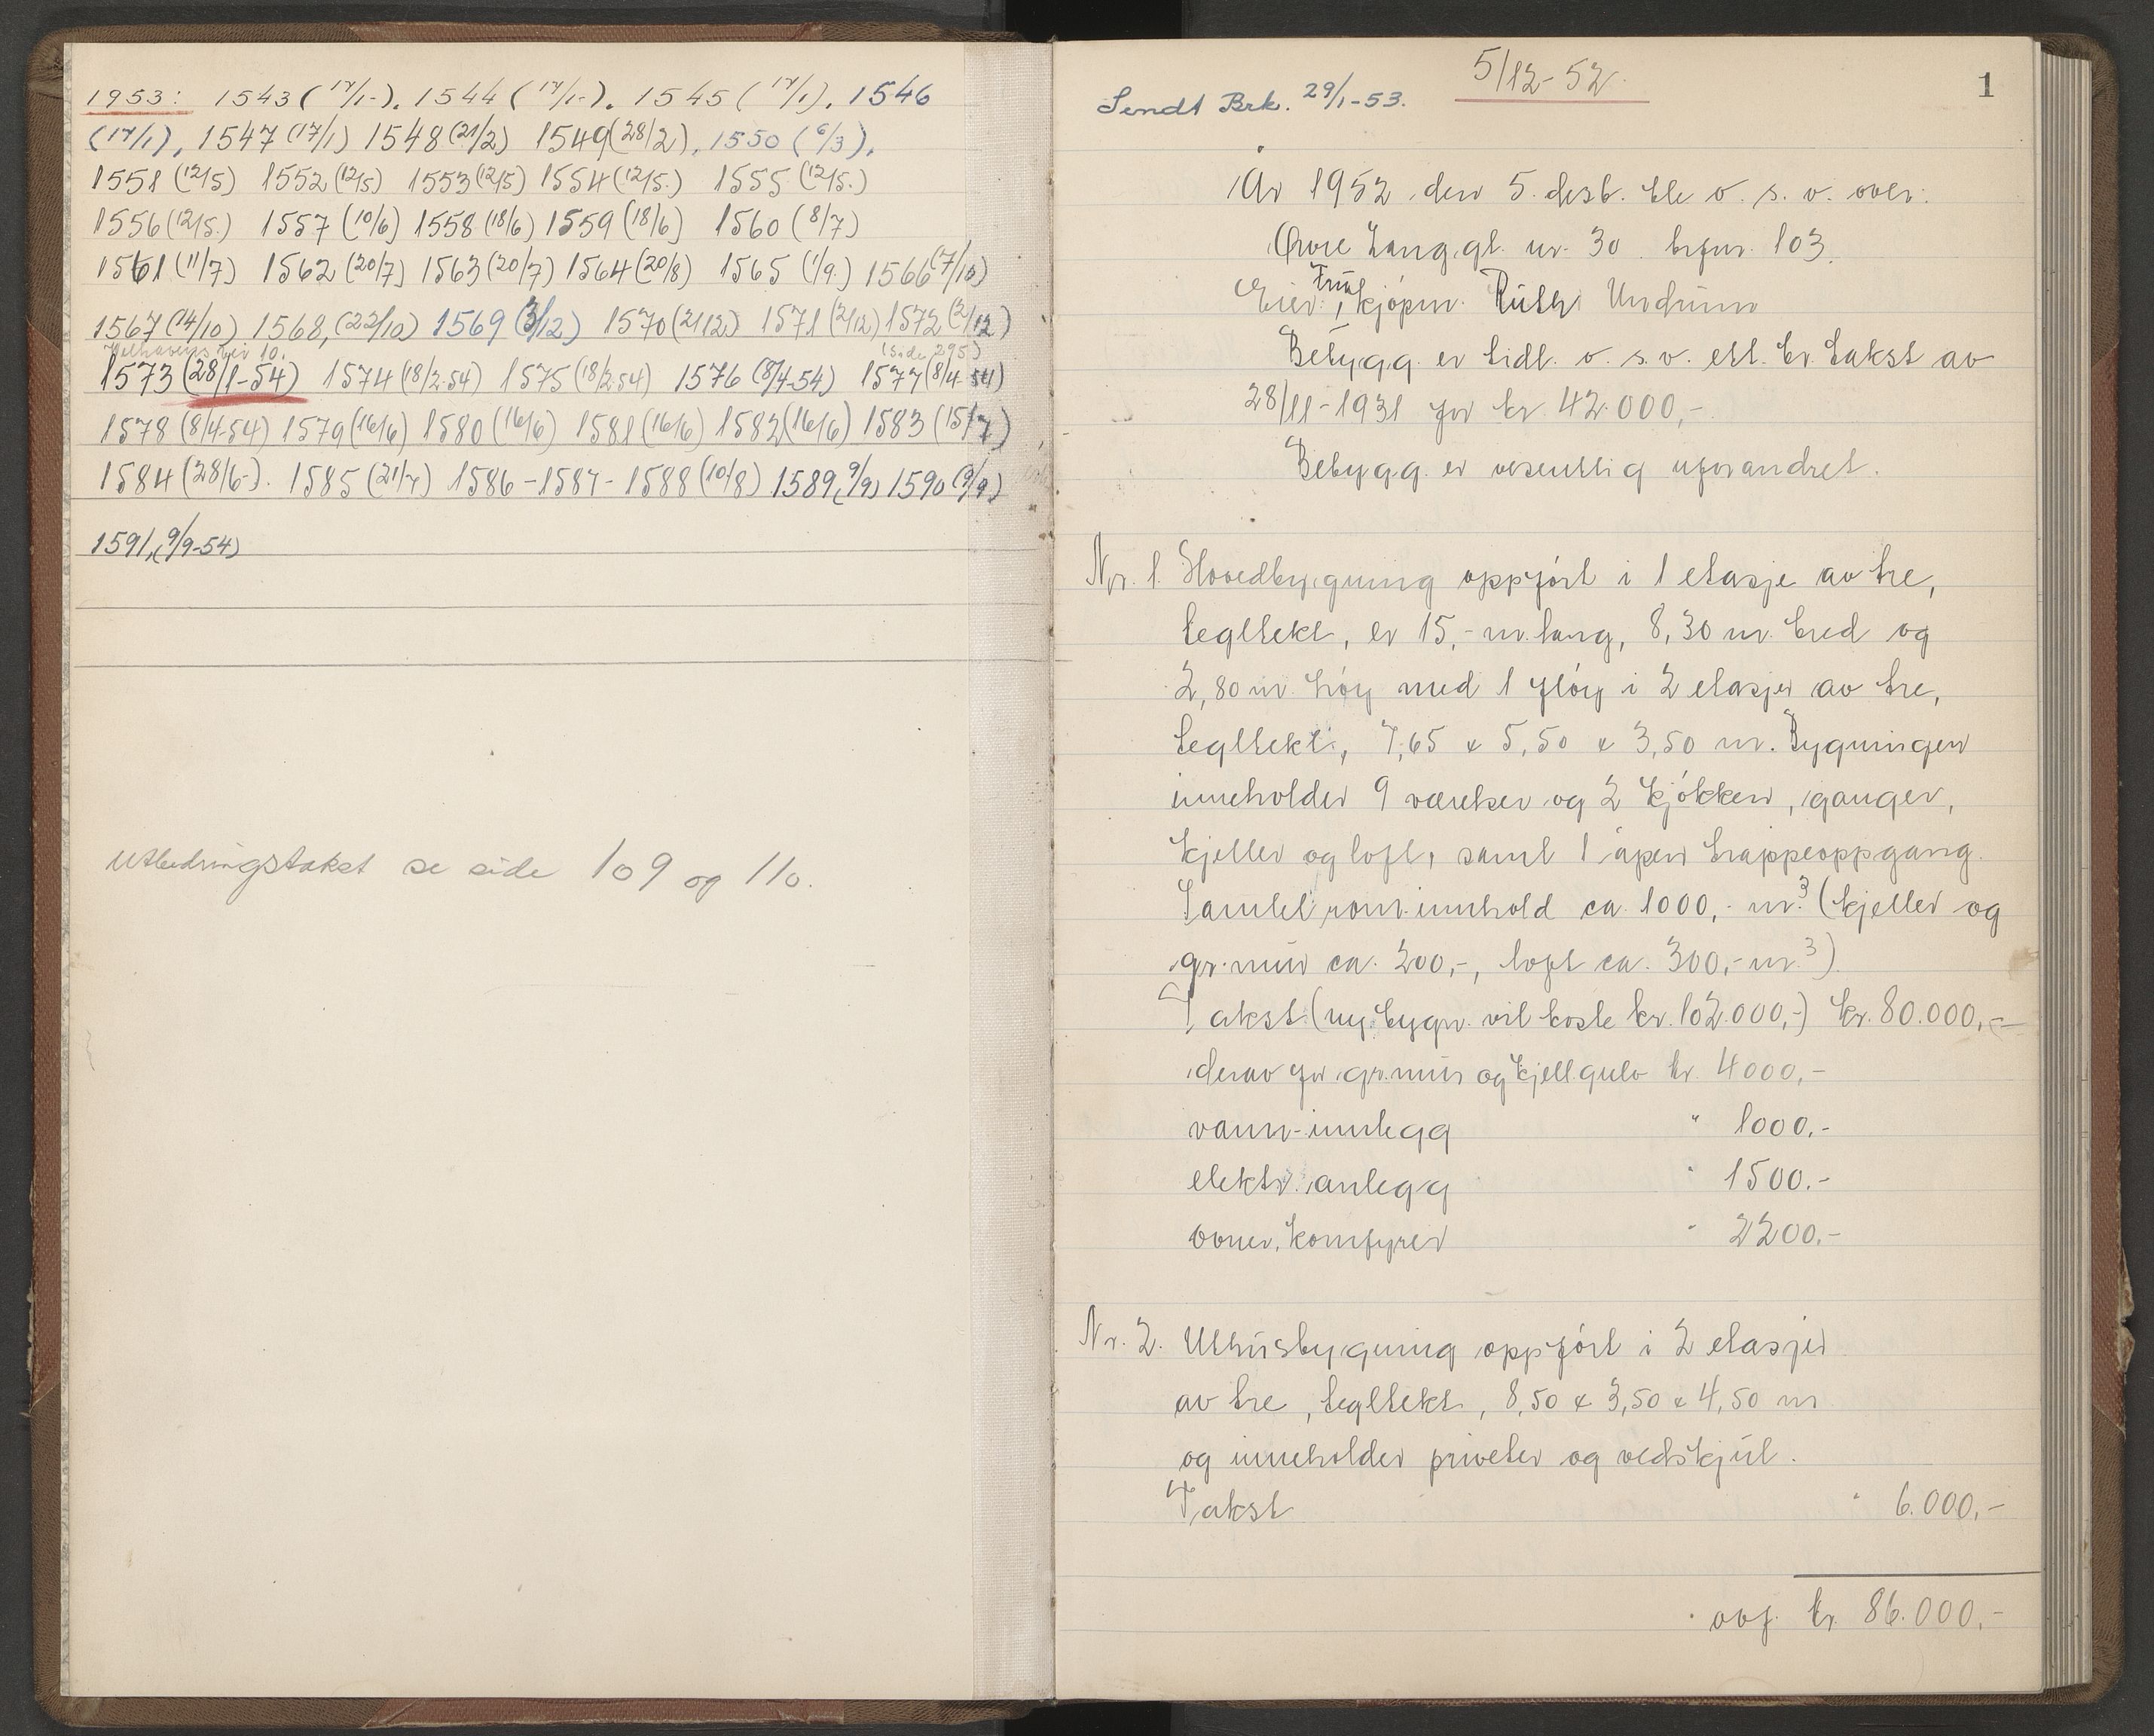 1953: 1543 (17/1-). 1544 (17/1-). 1545 (17/1). 1546
(17/1), 1547 (17/1) 1548 (21/2) 1549 (28/2), 1550 (6/3).
1551 (12/5) 1552 (12/5) 1553 (12/5) 1554 (12/5.) 1555 (12/5.)
1556 (12/5.) 1557 (10/6) 1558 (18/6) 1559 (18/6) 1560 (8/7)
1561 (11/7) 1562 (20/7) 1563 (20/7) 1564 (20/8) 1565 (1/9.) 1566 (7/10)
1567 (14/10) 1568, (22/10) 1569 (3/12) 1570 (2/12) 1571 (2/12) 1572 (2/12)
Welhavens vei 10. (side 295)
1573 (28/1-54) 1574 (18/2-54) 1575 (18/2.54) 1576 (8/4-54) 1577 (8/4-54)
1578 (8/4-54) 1579 (16/6) 1580 (16/6) 1581 (16/6) 1582 (16/6) 1583 (15/7)
1584 (28/6-). 1585 (21/7) 1586-1587-1588 (10/8) 1589, (9/9) 1590 (9/9)
1591, (9/9-54)
Utbedringstakst se side 109 og 110.
1
5/12-52
Sendt Brk. 29/1-53.
År 1952 den 5. desb. ble o. s. v. over:
Øvre Langgt. nr. 30 brfnr. 103.
Eier: Fru kjøpm. Ruth Undrum
Bebygg. er tidl. o. s. v. ett. br. takst av
28/11-1931 for kr 42.000,-.
Bebygg. er vesentlig uforandret.
Nr. 1. Hovedbygning oppført i 1 etasje av tre,
tegltekt, er 15,- m. lang, 8,30 m. bred og
2,80 m. høy med 1 fløy i 2 etasjer av tre,
tegltekt, 7,65 x 5,50 x 3,50 m. Bygningen
inneholder 9 værelser og 2 kjøkken, ganger,
kjeller og loft, samt 1 åpen trappeoppgang.
Samlet rom.innhold ca. 1000,- m.³ (kjeller og
gr.mur ca. 200,-, loft ca. 300,- m.³)
Takst (ny bygn. vil koste kr. 102.000,-) kr. 80.000,-
derav for gr.mur og kjell.gulv kr. 4000,-
vann-innlegg " 1000,-
elektr. anlegg " 1500.-
ovner, komfyrer " 2200.-
Nr. 2. Uthusbygning oppført i 2 etasjer
av tre, tegltekt, 8,50 x 3,50 x 4,50 m
og inneholder priveter og vedskjul.
Takst " 6.000,-
ovf. kr. 86.000,-